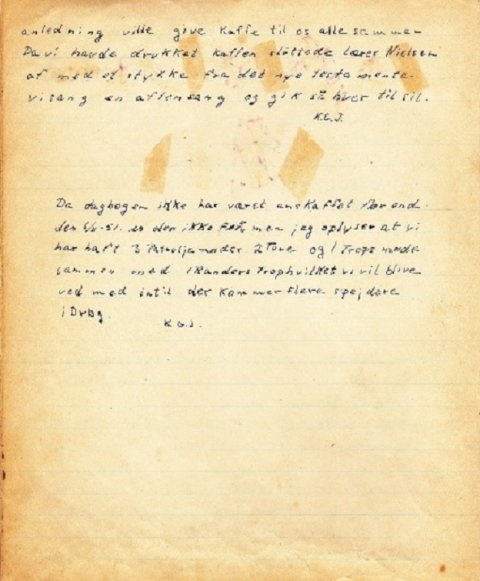 anledning ville give kaffe til os allesammen
Da vi havde drukket kaffen sluttede lærer Nielsen
af med et stykke fra det nye testamente.
vi sang en aftensang og gik så hver til sit.
K.G.J.
Da dagbogen ikke har været anskaffet før end
den er der ikke ført, men jeg oplyser at vi
har haft 3 Patruljemøder 2 Ture og 1 Tropsmøde
sammen med 1 Randers Trop hvilket vi vil blive
ved med intil der kommer flere spejdere
i Ørbg.
K.G.J.